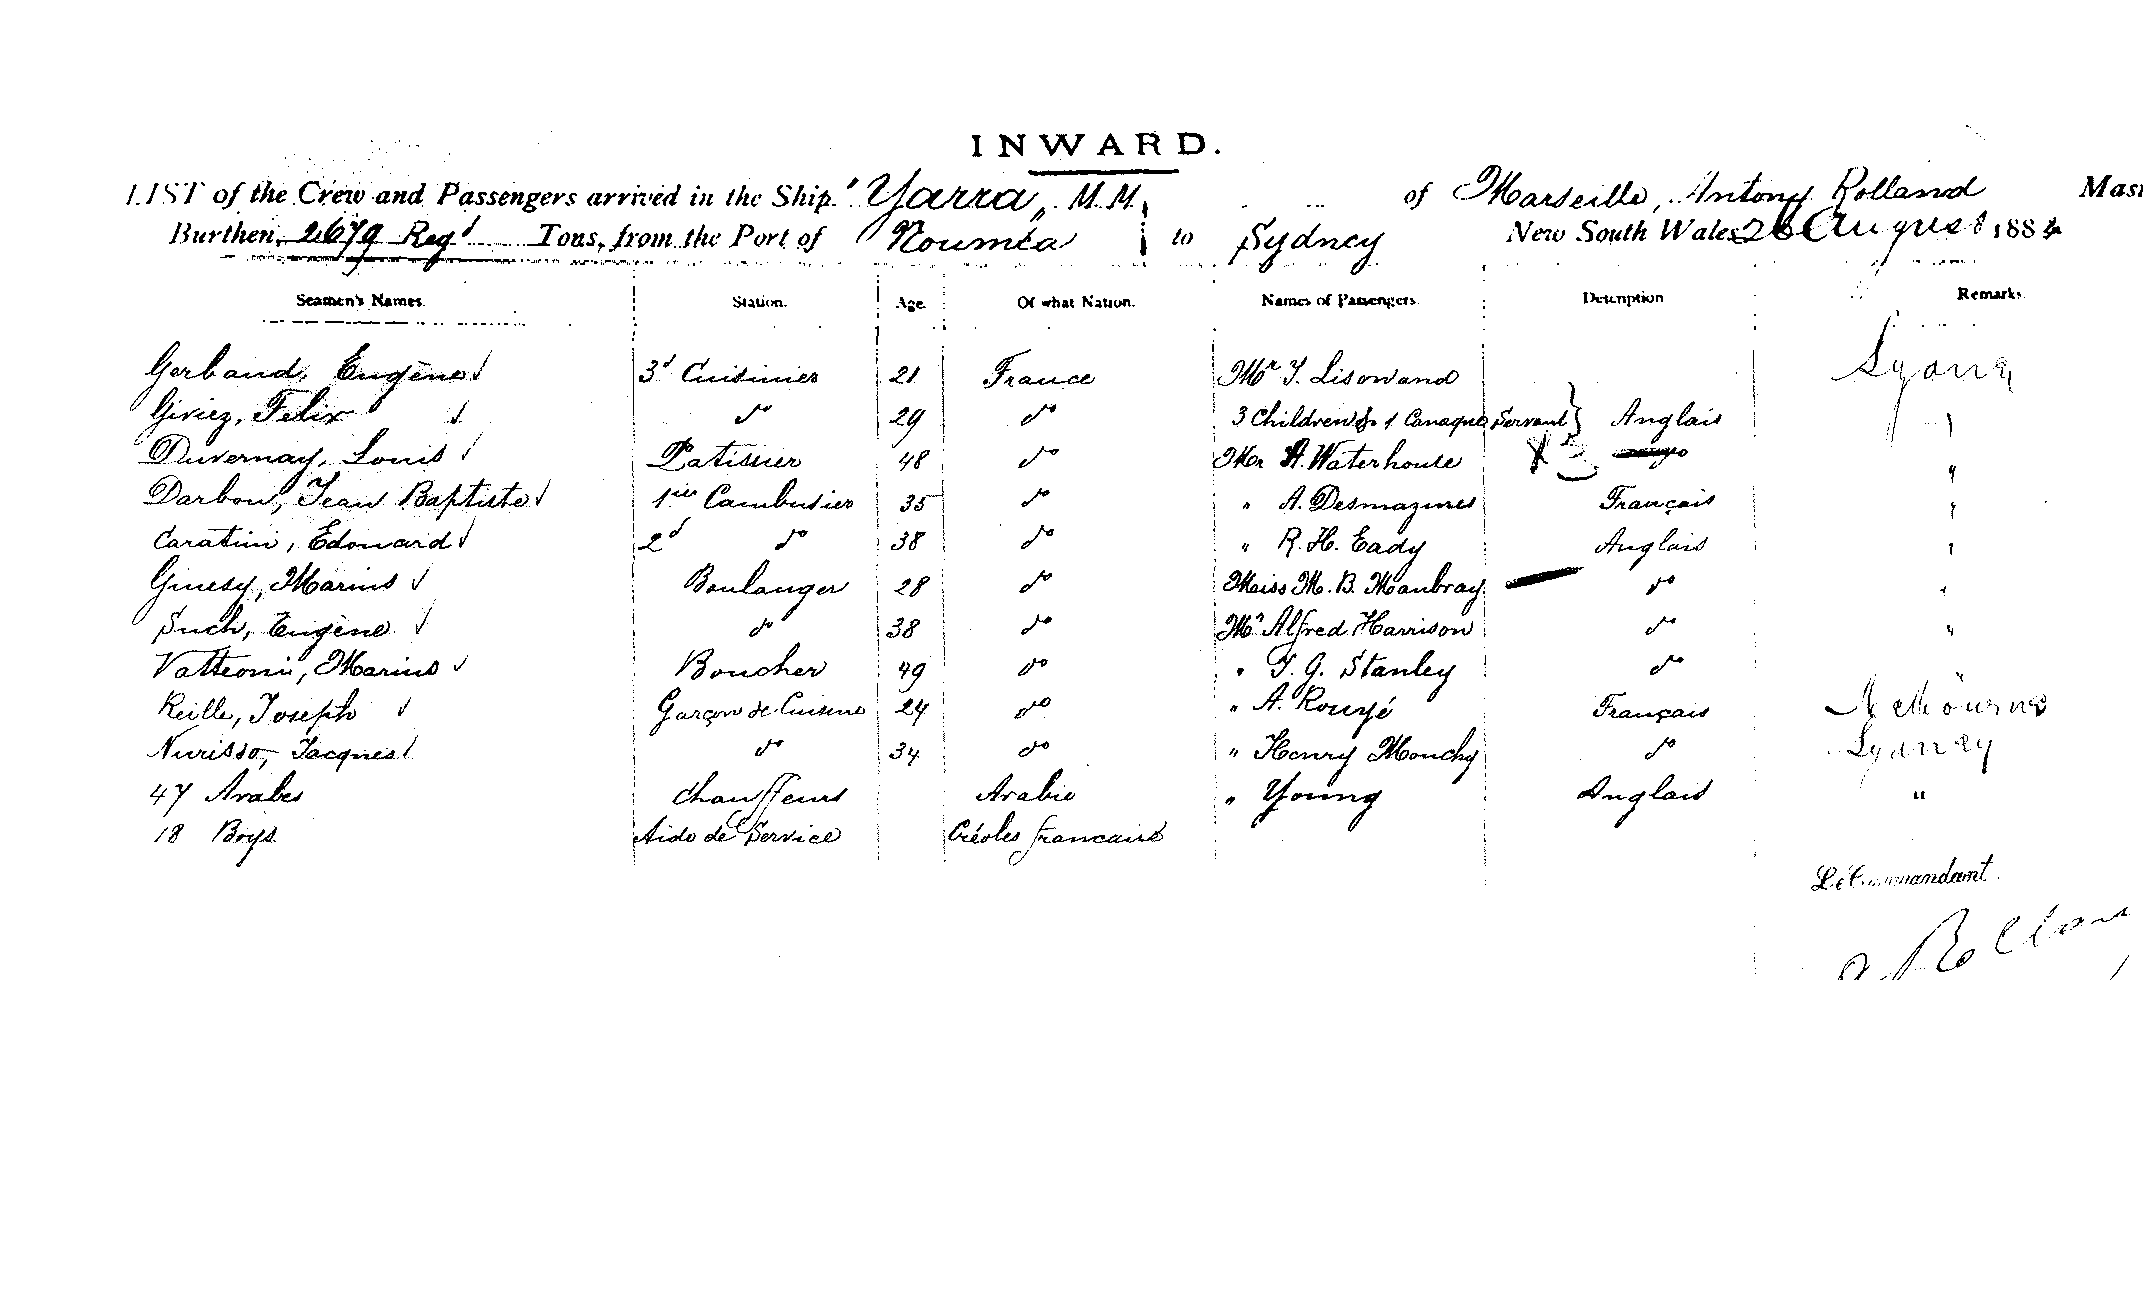 INWARD.
LIST of the Crew and Passengers arrived in the Ship Yarra, M.M. of Marseille, Antony Rolland Mas
Burthen, 2679 Regd Tons, from the Port of Nouméa to Sydney New South Wales 26 August 1884
Seamen's Names. Station. Age. Of what Nation. Names of Passengers. Description Remarks
Gerbaud, Eugène 3d Cuisinier 21 France Mr J. Lisowand
Giviez, Felix do 29 do 3 Children & 1 Canaque Servant } Anglais
Duvernay, Louis Patissier 48 do Mr A. Waterhouse X
Darbou, Jean Baptiste 1ier Cambusier 35 do " A. Desmazures Français "
Caratini, Edouard 2d do 38 do " R. H. Eady Anglais "
Ginesy, Marius Boulanger 28 do Meiss M. B. Maubray do "
Such, Eugène do 38 do Mr Alfred Harrison do "
Vatteoni, Marius Boucher 49 do " T. G. Stanley do
Reille, Joseph Garçon de Cuisine 24 do " A. Rouyé Français Melbourne
Nurisso, Jacques do 34 do " Henry Mouchy do Sydney
47 Arabes Chauffeurs Arabie " Young Anglais "
18 Boys Aide de Service Créoles francaise
Le Commandant